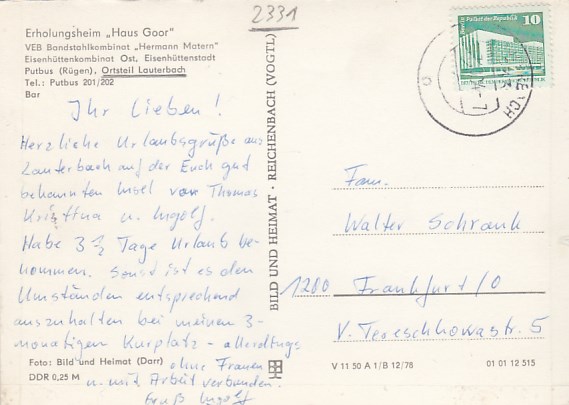 2331
Erholungsheim „Haus Goor“
VEB Bandstahlkombinat „Hermann Matern“
Eisenhüttenkombinat Ost, Eisenhüttenstadt
Putbus (Rügen), Ortsteil Lauterbach
Tel.: Putbus 201/202
Bar
Ihr Lieben!
Herzliche Urlaubsgrüße aus
Lauterbach auf der Euch gut
bekannten Insel von Thomas
u. Ingolf.
Habe 3 ½ Tage Urlaub be-
kommen. Sonst ist es den
Umständen entsprechend
auszuhalten bei meinen 3-
monatigen Kurplatz - allerdings
ohne Frauen
u. mit Arbeit verbunden.
Gruß Ingolf
Foto: Bild und Heimat (Darr)
DDR 0,25 M
BILD UND HEIMAT · REICHENBACH (VOGTL)
10
DDR
Fam.
Walter Schrank
1200 Frankfurt/O
V. Tereschkowastr. 5
V 11 50 A 1/B 12/78
01 01 12 515